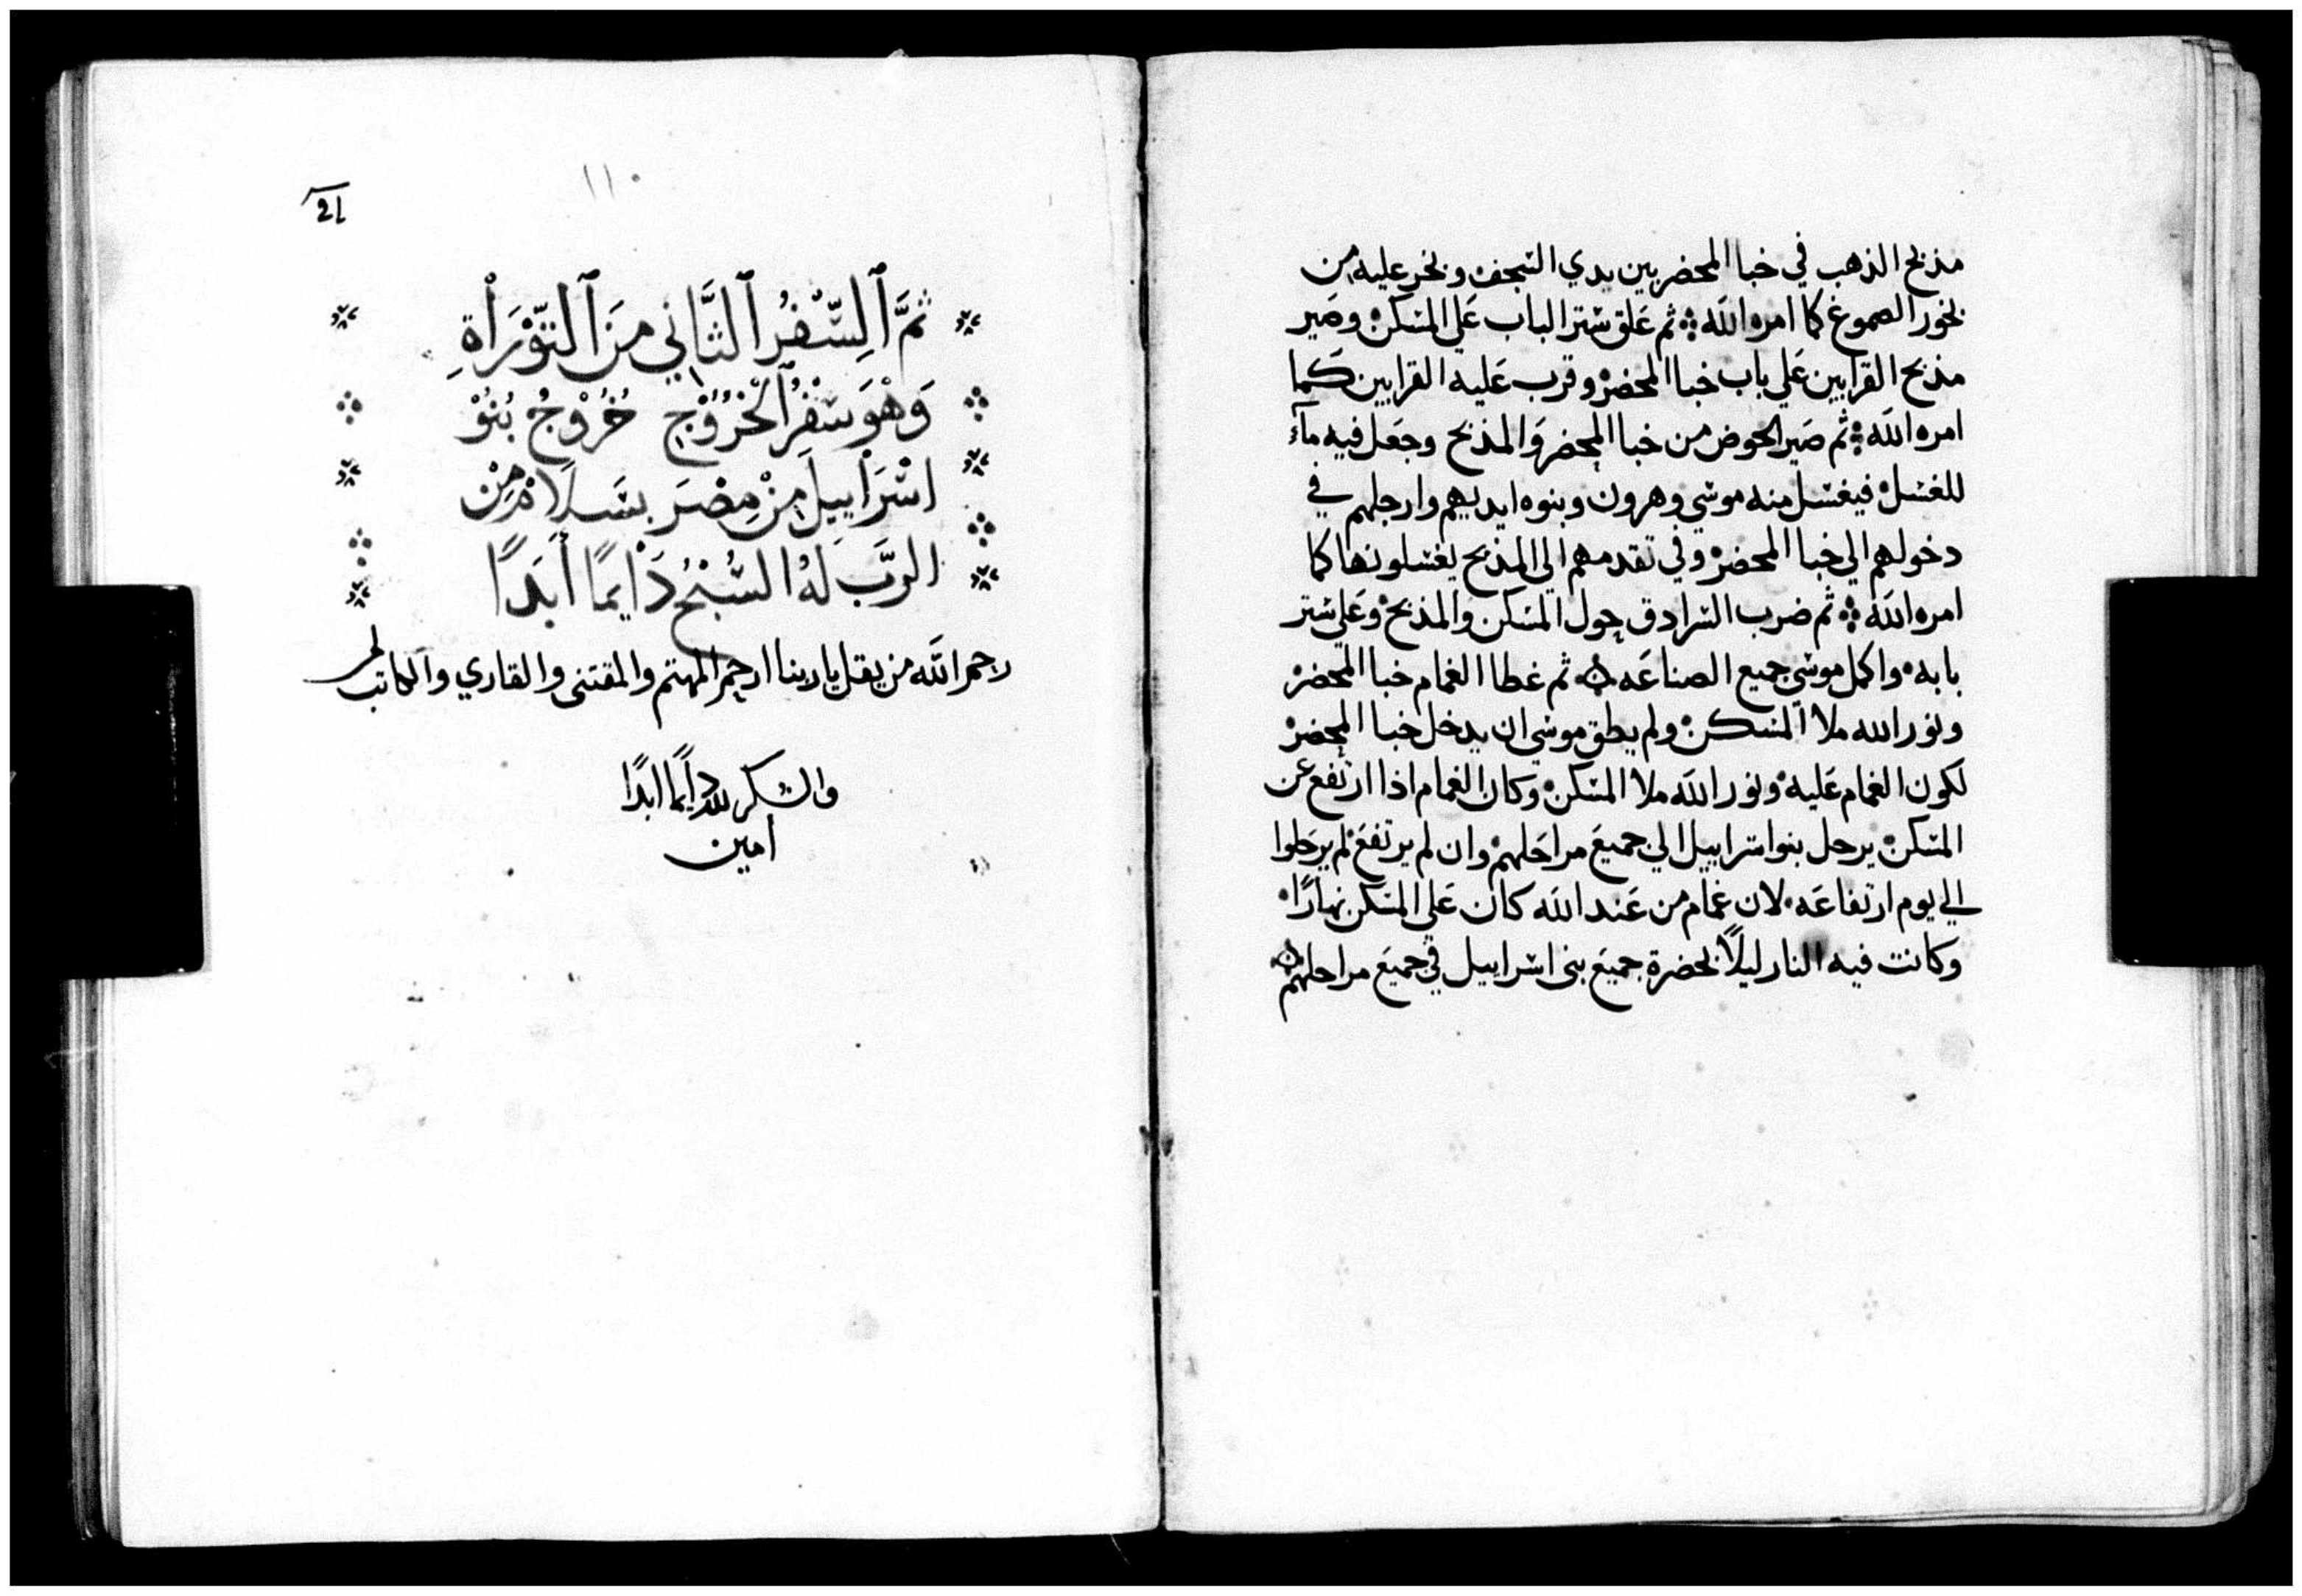 مذبح الذهب في خبا المحضر بين يدي السجف وبخر عليه من
بخور الصموغ كما امره الله ثم علق ستر الباب علي المسكن وصير
مذبح القرابين علي باب خبا المحضر وقرب عليه القرابين كما
امره الله ثم صير الحوض من خبا المحضر والمذبح وجعل فيه مآء
للغسل فيغسل منه موسي وهرون وبنوه ايديهم وارجلهم في
دخولهم الي خبا المحضر وفي تقدمهم الي المذبح يغسلونها كما
امره الله ثم ضرب السرادق حول المسكن والمذبح وعلي ستر
بابه واكمل موسي جميع الصناعه ثم غطا الغمام خبا المحضر
ونور الله ملا المسكن ولم يطق موسي ان يدخل خبا المحضر
لكون الغمام عليه ونور الله ملا المسكن وكان الغمام اذا ارتفع عن
المسكن يرحل بنوا اسراييل الي جميع مراحلهم وان لم يرتفع لم يرحلوا
الي يوم ارتفاعه لان غمام من عند الله كان علي المسكن نهارًا
وكانت فيه النار ليلًا بحضرة جميع بني اسراييل في جميع مراحلهم
١١٠
21
ثمَّ ٱلسِّفْرُ ٱلثَّاني منَ ٱلتَّوْرَاْةِ
وَهْوَ سْفرُ ٱلْخُرُوْجِ خُرُوْجُ بُنُوْ
اسْرَاْييلَ مِنْ مِصْرَ بسَلَامْ مِنْ
الربَّ لهُ السُبْحُ دَاْيمًا أَبَدًا
رحم الله من يقل يا ربنا ارحم المهتم والمقتني والقاري والكاتب
والشكر لله دايمًا ابدًا
امين